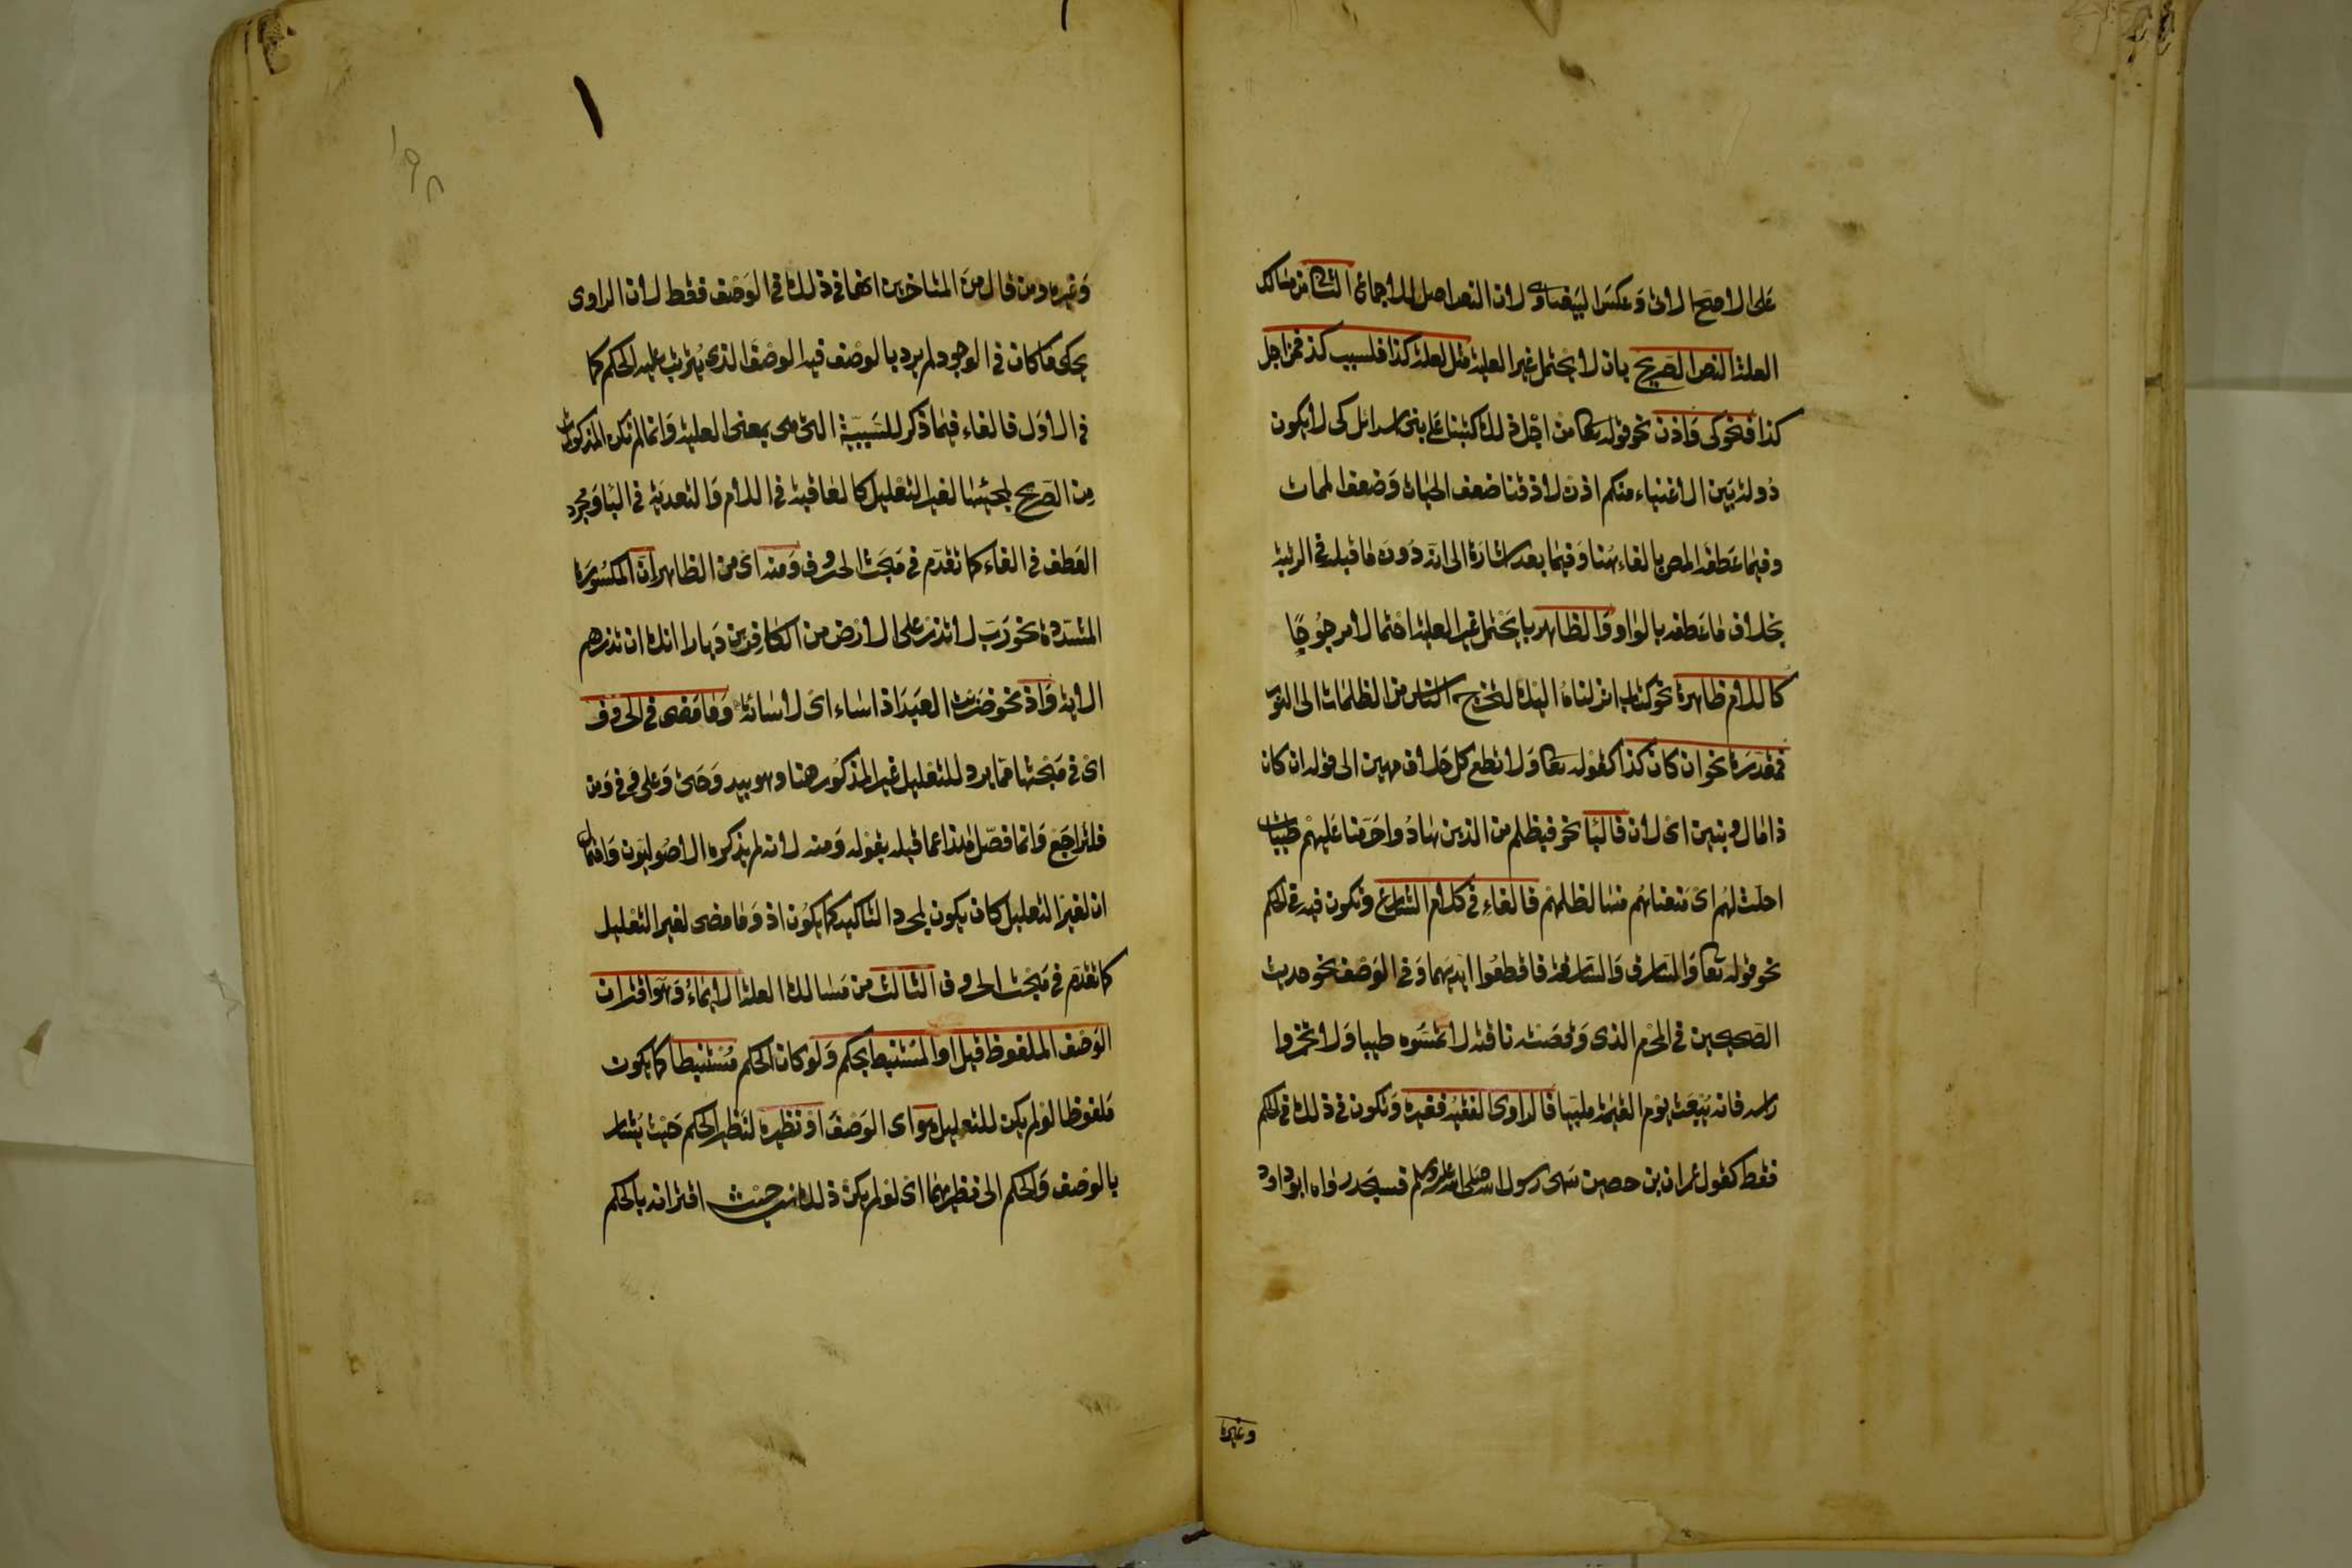 على الاصح الاتى وعكس البيضاوى لان النص اصل للاجماع الثانى من مسالك
العلة النص الصريح بان لا يحتمل غير العلية مثل لعلة كذا فلسبب كذا فمن اجل
كذا فنحو كى واذن نحو قوله تعا من اجل ذلك كتبنا على بنى اسرائل كى لا يكون
دولة بين الاغنياء منكم اذن لاذقناك ضعف الحيات وضعف الممات
وفيما عطفه المص بالفاء هنا وفيما بعد اشارة الى انه دونه ما قبله فى الرتبة
بخلاف ما عطفه بالواو والظاهر با يحتمل غير العلية احتمالا مرجوحًا
كاللام ظاهرة نحو كتاب انزلناه اليك لتخرج الناس من الظلمات الى النور
فمقدرة نحو ان كان كذا كقوله تعا ولا تطع كل حلاف مهين الى قوله ان كان
ذا مال وبنين اى لان فالبا نحو فبظلم من الذين هادوا حرمنا عليهم طيبات
احلت لهم اى منعناهم منها لظلمهم فالفاء فى كلام الشارع وتكون فيه فى الحكم
نحو قوله تعا والسارق والسارقة فاقطعوا ايديهما وفى الوصف نحو حديث
الصحيحين فى المحرم الذى وقصته ناقته لا تمسوه طيبا ولا تخمروا
راسه فانه يبعث يوم القيمة ملبيا فالراوى الفقيه فغيره وتكون فى ذلك فى الحكم
فقط كقول عمران بن حصين سهى رسول الله صلى الله عليه وسلم فسجد رواه ابو داود
وغيره
وغيره ومن قال من المتاخرين انها فى ذلك فى الوصف فقط لان الراوى
يحكى ما كان فى الوجود لم يرد بالوصف فيه الوصف الذى يترتب عليه الحكم كما
فى الاول فالفاء فيما ذكر للسببية التى هى بمعنى العلية وانما لم تكن المذكورات
من الصريح لمجيئها لغير التعليل كالعاقبة فى اللام والتعدية فى البا ومجرد
العطف فى الفاء كما تقدم فى مبحث الحروف ومنه اى من الظاهر ان المكسورة
المشددة نحو رب لا تذر على الارض من الكافرين ديارا انك ان تذرهم
الاية واذ نحو ضربت العبد اذ اساء اى لاسائته وما مضى فى الحروف
اى فى مبحثها مما يرد للتعليل غير المذكور هنا وهو بيد وحتى وعلى وفى ومن
فلتراجع وانما فصل هذا عما قبله بقوله ومنه لانه لم يذكره الاصوليون واحتمال
ان لغير التعليل كان يكون لمجرد التاكيد كما يكون اذ وما مضى لغير التعليل
كما تقدم فى مبحث الحروف الثالث من مسالك العلة الايماء وهو اقتران
الوصف الملفوظ قيل او المستنبط بحكم ولو كان الحكم مستنبطا كما يكون
ملفوظا لو لم يكن للتعليل هو اى الوصف او نظيره لنظير الحكم حيث يشار
بالوصف والحكم الى نظيرهما اى لو لم يكن ذلك من حيث اقترانه بالحكم